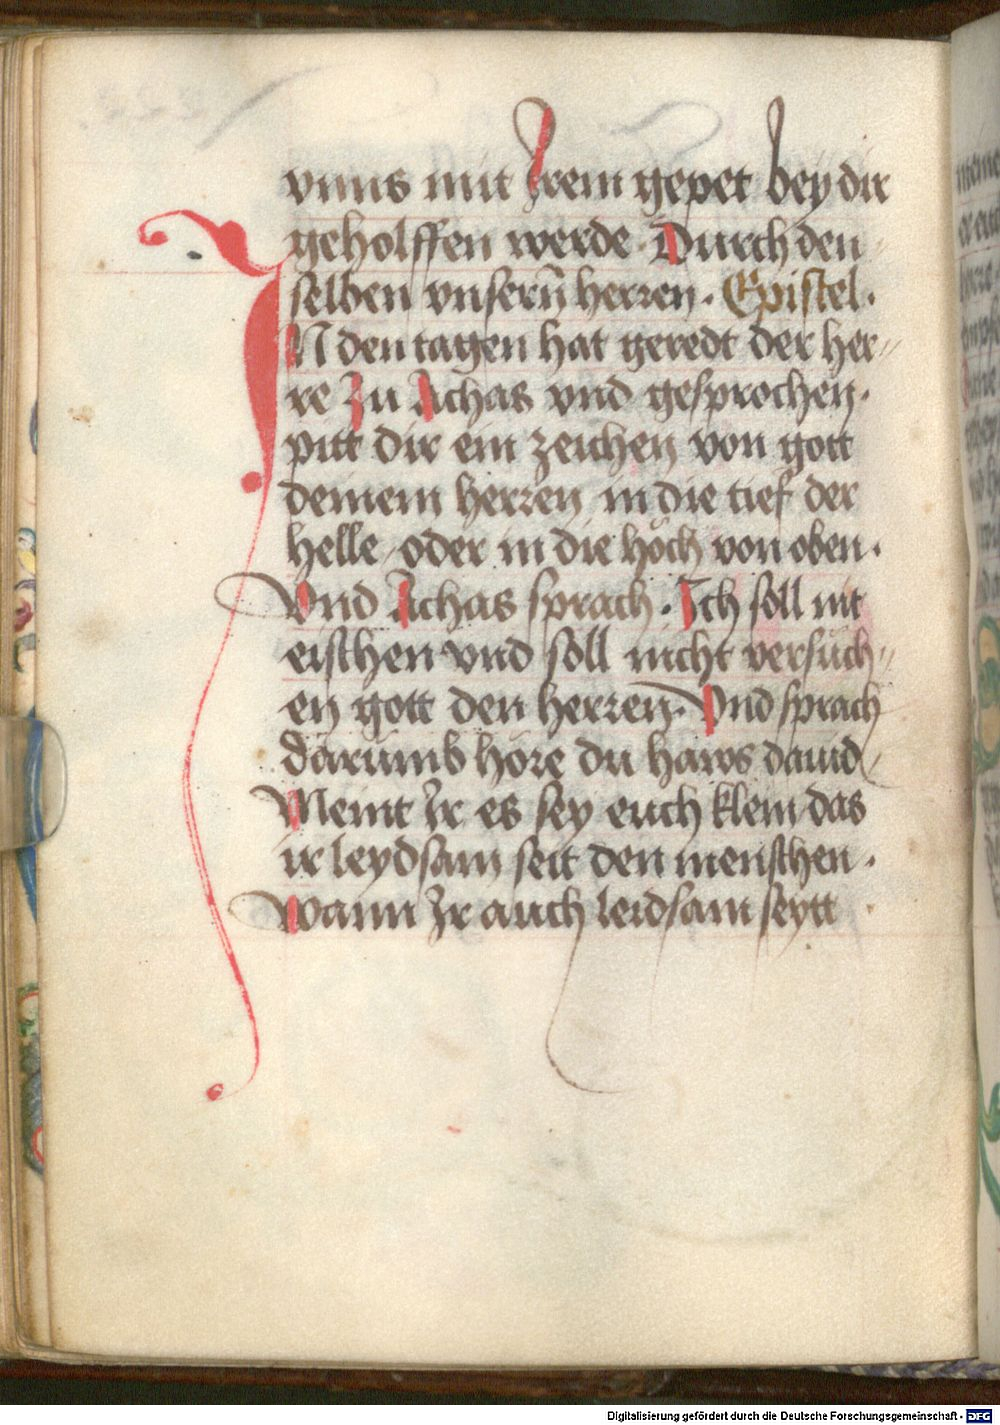 vnns mit Irem gepet bey dir
geholffen werde. Durch den
selben vnsern̄ herren. Epistel.
IN den tagen hat geredt der her=
re Zu Achas vnd gesprochen.
pitt dir ein zeichen von gott
deinem herren in die tief der
helle oder in die höch von oben.
Vnd Achas sprach. Ich soll nit
eischen vnd soll nicht versuch=
en gott den herren. Vnd sprach
darumb höre du haws dauid
Meint Ir es sey euch klein das
ir leydsam seit den menschen.
Wann Ir auch leidsam seytt
Digitalisierung gefördert durch die Deutsche Forschungsgemeinschaft - DFG